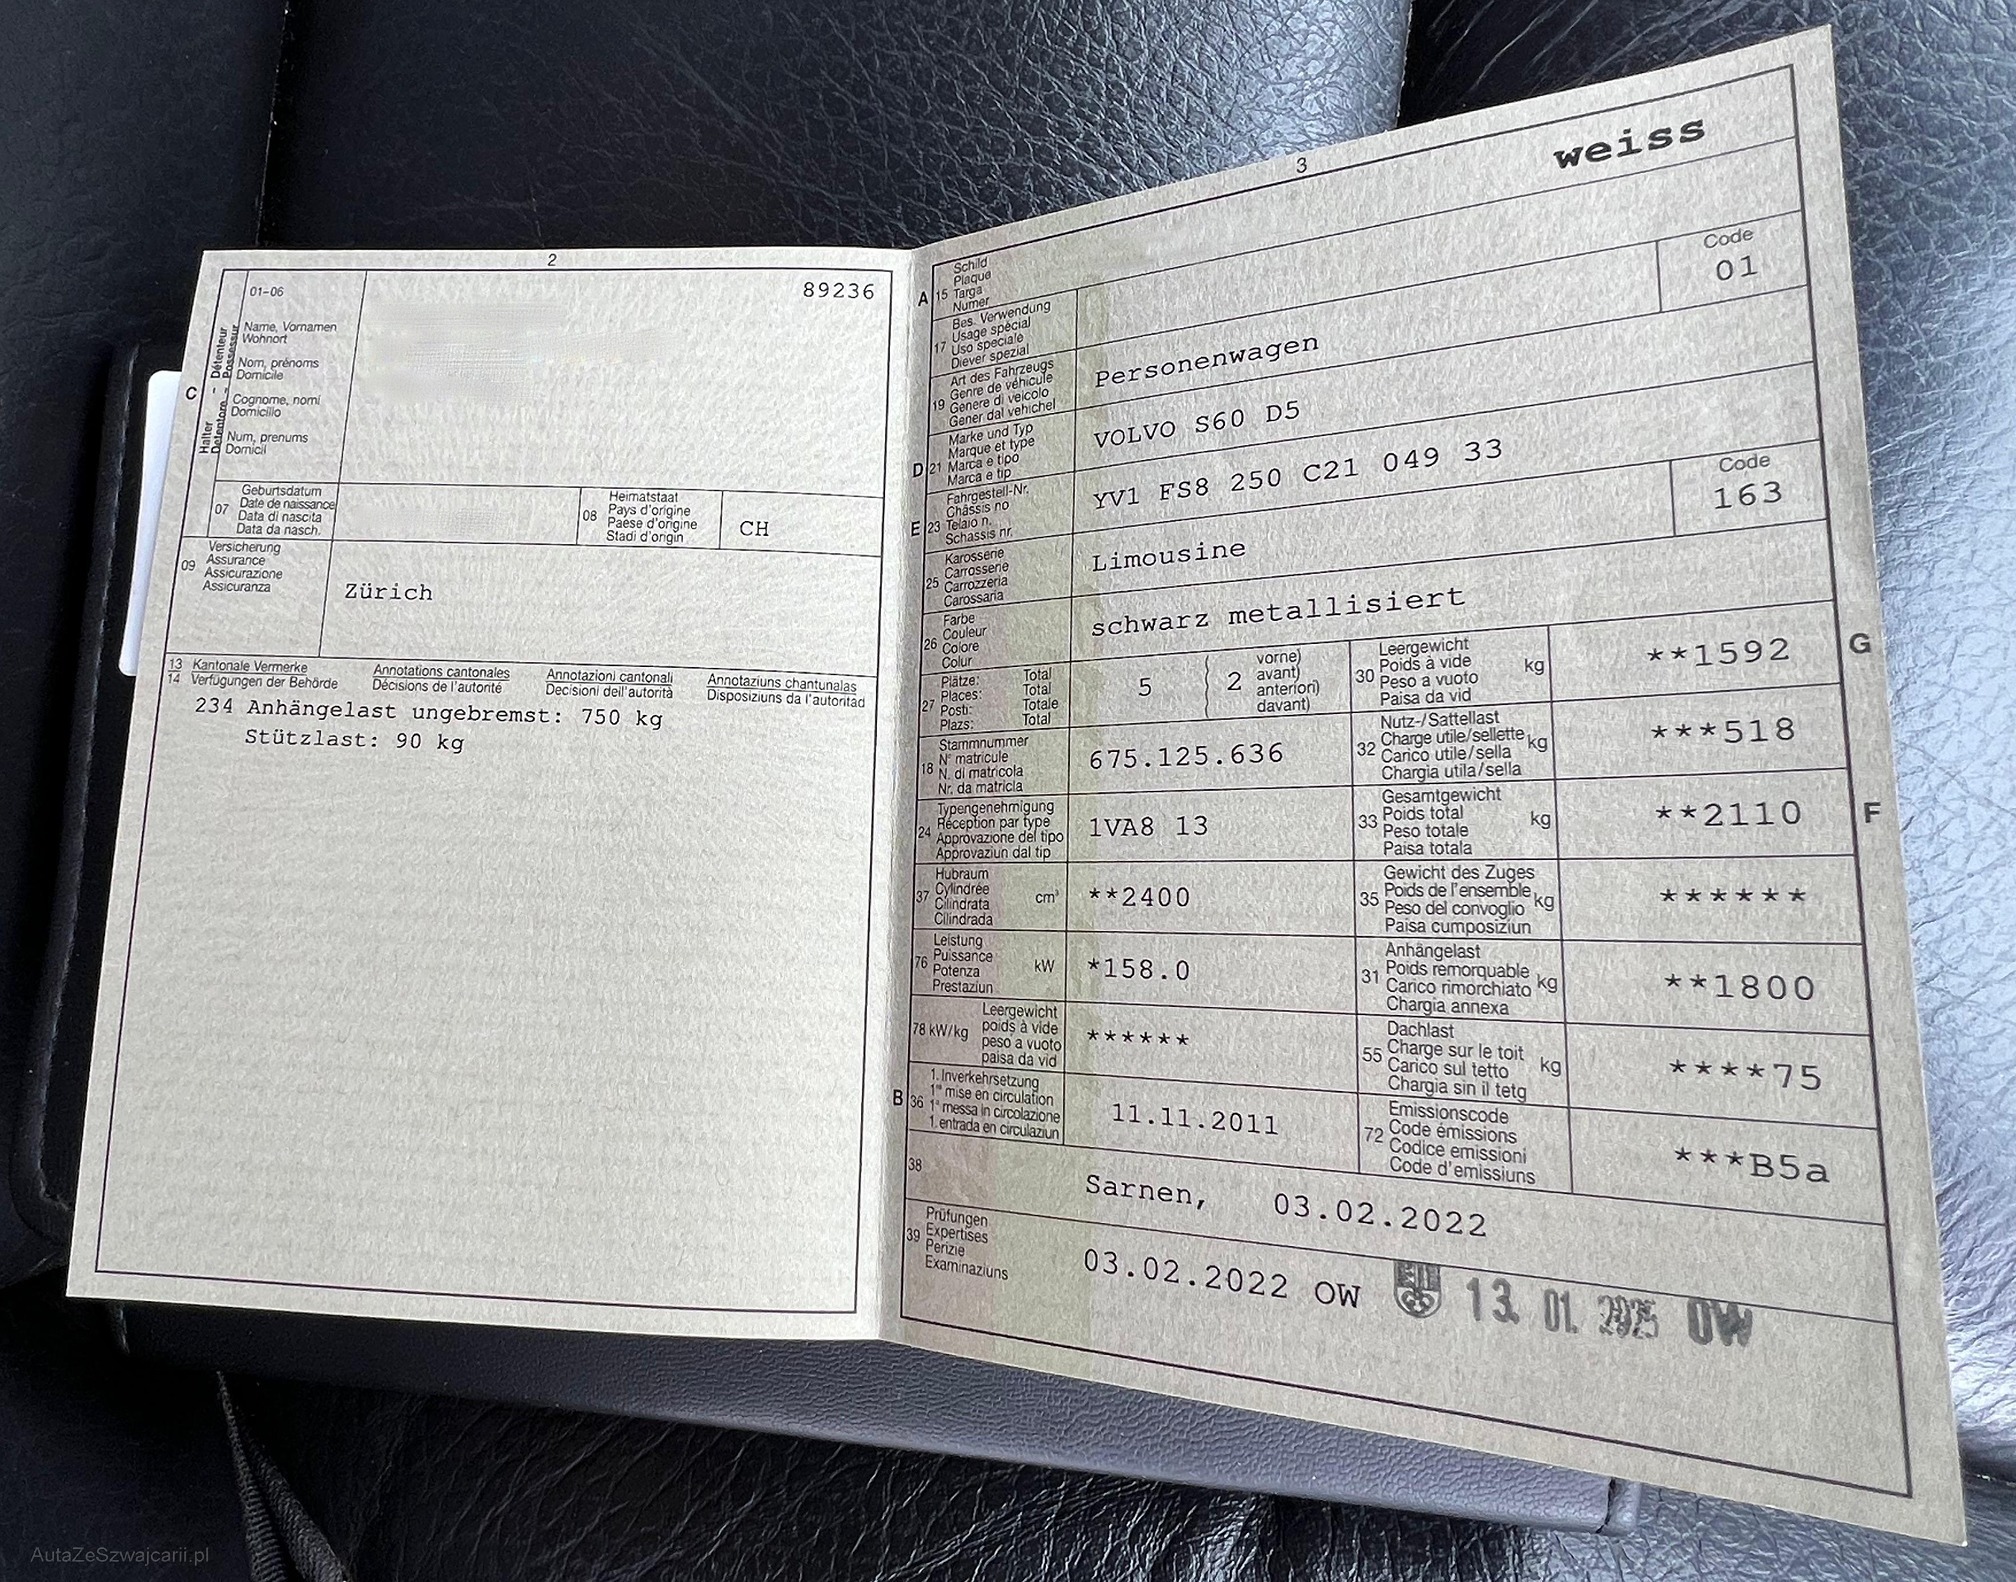 2
01-06
89236
C
Halter - Détenteur
Detentore - Possessur
Name, Vornamen
Wohnort
Nom, prénoms
Domicile
Cognome, nomi
Domicilio
Num, prenums
Domicil
07
Geburtsdatum
Date de naissance
Data di nascita
Data da nasch.
08
Heimatstaat
Pays d'origine
Paese d'origine
Stadi d'origin
CH
09
Versicherung
Assurance
Assicurazione
Assicuranza
Zürich
13 Kantonale Vermerke Annotations cantonales Annotazioni cantonali Annotaziuns chantunalas
14 Verfügungen der Behörde Décisions de l'autorité Decisioni dell'autorità Disposiziuns da l'autoritad
234 Anhängelast ungebremst: 750 kg
Stützlast: 90 kg
3
weiss
A 15
Schild
Plaque
Targa
Numer
17
Bes. Verwendung
Usage spécial
Uso speciale
Diever spezial
Code
01
19
Art des Fahrzeugs
Genre de véhicule
Genere di veicolo
Gener dal vehichel
Personenwagen
D 21
Marke und Typ
Marque et type
Marca e tipo
Marca e tip
VOLVO S60 D5
E 23
Fahrgestell-Nr.
Châssis no
Telaio n.
Schassis nr.
YV1 FS8 250 C21 049 33
25
Karosserie
Carrosserie
Carrozzeria
Carossaria
Limousine
Code
163
26
Farbe
Couleur
Colore
Colur
schwarz metallisiert
27
Plätze: Total
Places: Total
Posti: Totale
Plazs: Total
5
2
vorne)
avant)
anteriori)
davant)
30
Leergewicht
Poids à vide
Peso a vuoto
Paisa da vid
kg
**1592
G
18
Stammnummer
N° matricule
N. di matricola
Nr. da matricla
675.125.636
32
Nutz-/Sattellast
Charge utile/sellette
Carico utile/sella
Chargia utila/sella
kg
***518
24
Typengenehmigung
Réception par type
Approvazione del tipo
Approvaziun dal tip
1VA8 13
33
Gesamtgewicht
Poids total
Peso totale
Paisa totala
kg
**2110
F
37
Hubraum
Cylindrée
Cilindrata
Cilindrada
cm³
**2400
35
Gewicht des Zuges
Poids de l'ensemble
Peso del convoglio
Paisa cumposiziun
kg
******
76
Leistung
Puissance
Potenza
Prestaziun
kW
*158.0
31
Anhängelast
Poids remorquable
Carico rimorchiato
Chargia annexa
kg
**1800
78 kW/kg
Leergewicht
poids à vide
peso a vuoto
paisa da vid
******
55
Dachlast
Charge sur le toit
Carico sul tetto
Chargia sin il tetg
kg
****75
B 36
1. Inverkehrsetzung
1re mise en circulation
1a messa in circolazione
1. entrada en circulaziun
11.11.2011
72
Emissionscode
Code émissions
Codice emissioni
Code d'emissiuns
***B5a
38
Sarnen, 03.02.2022
39
Prüfungen
Expertises
Perizie
Examinaziuns
03.02.2022 OW
13. 01. 2025 OW
AutaZeSzwajcarii.pl